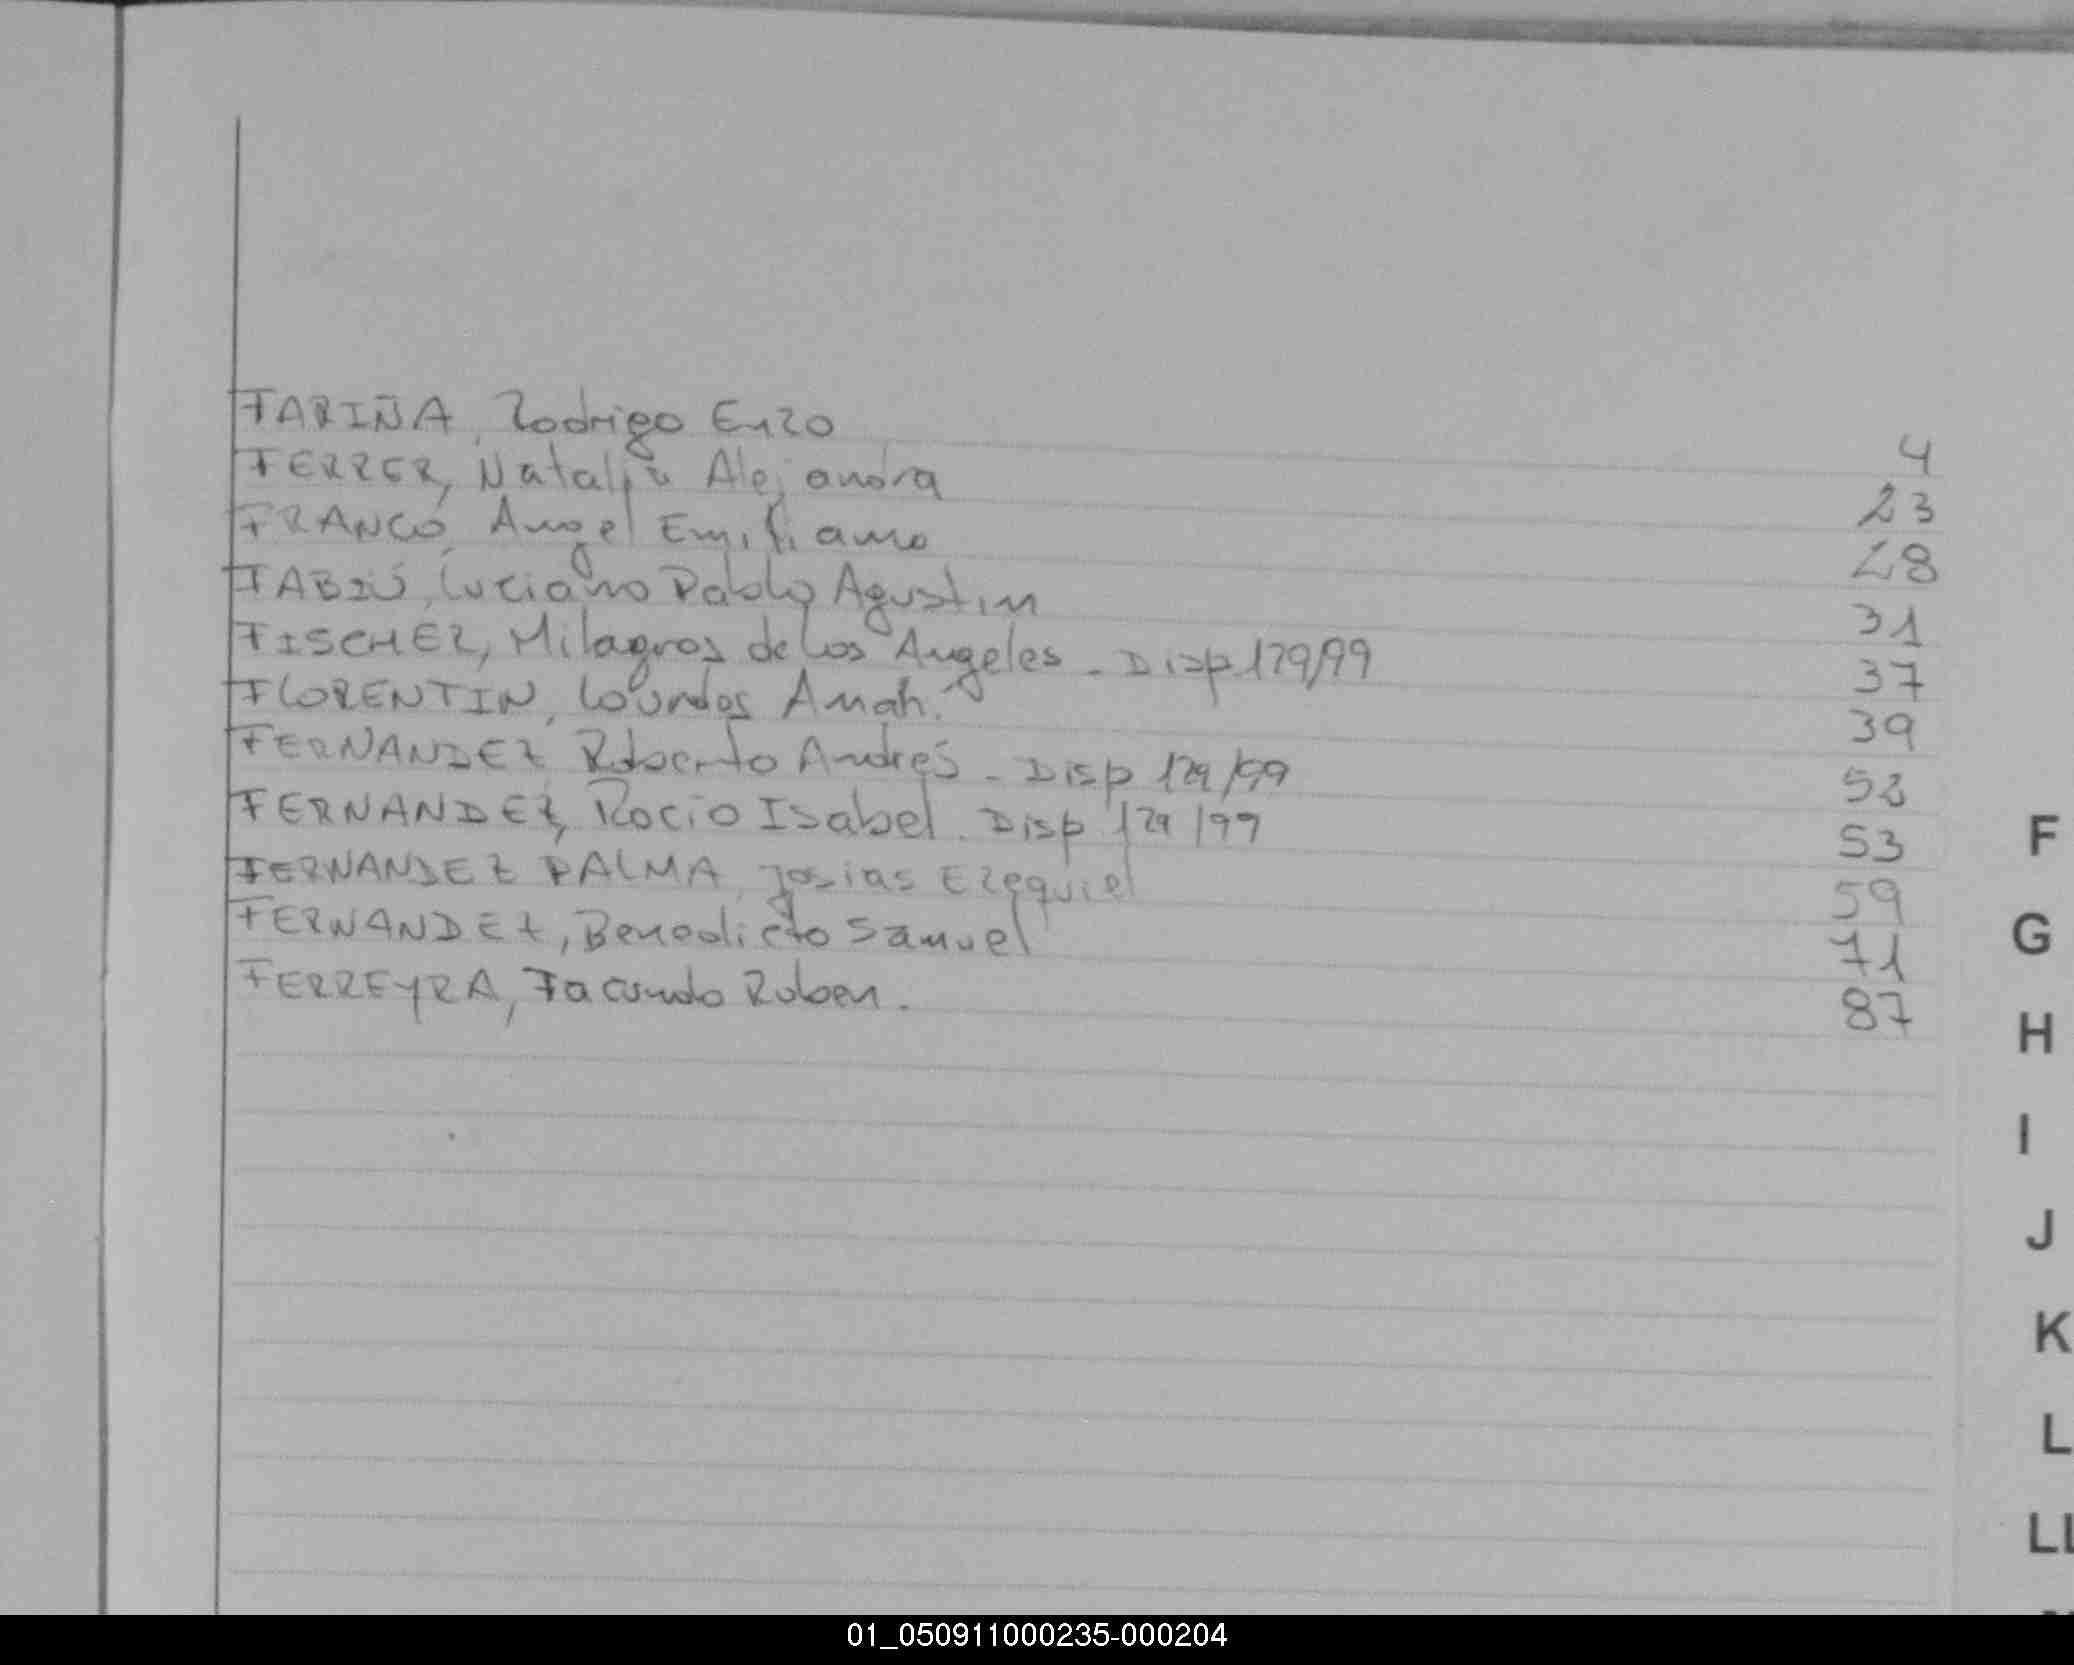 FARIÑA, Rodrigo Enzo 4
FERRER, Natalia Alejandra 23
FRANCO, Angel Emiliano 28
FABIÚ, Luciano Pablo Agustin 31
FISCHER, Milagros de los Angeles - Disp 129/99 37
FLORENTIN, Lourdes Anahi 39
FERNANDEZ Roberto Andrés - Disp 129/99 52
FERNANDEZ, Rocio Isabel. Disp 129/99 53
FERNANDEZ PALMA, Josias Ezequiel 59
FERNANDEZ, Benedicto Samuel 71
FERREYRA, Facundo Ruben. 87
F
G
H
I
J
K
L
LL
01_050911000235-000204